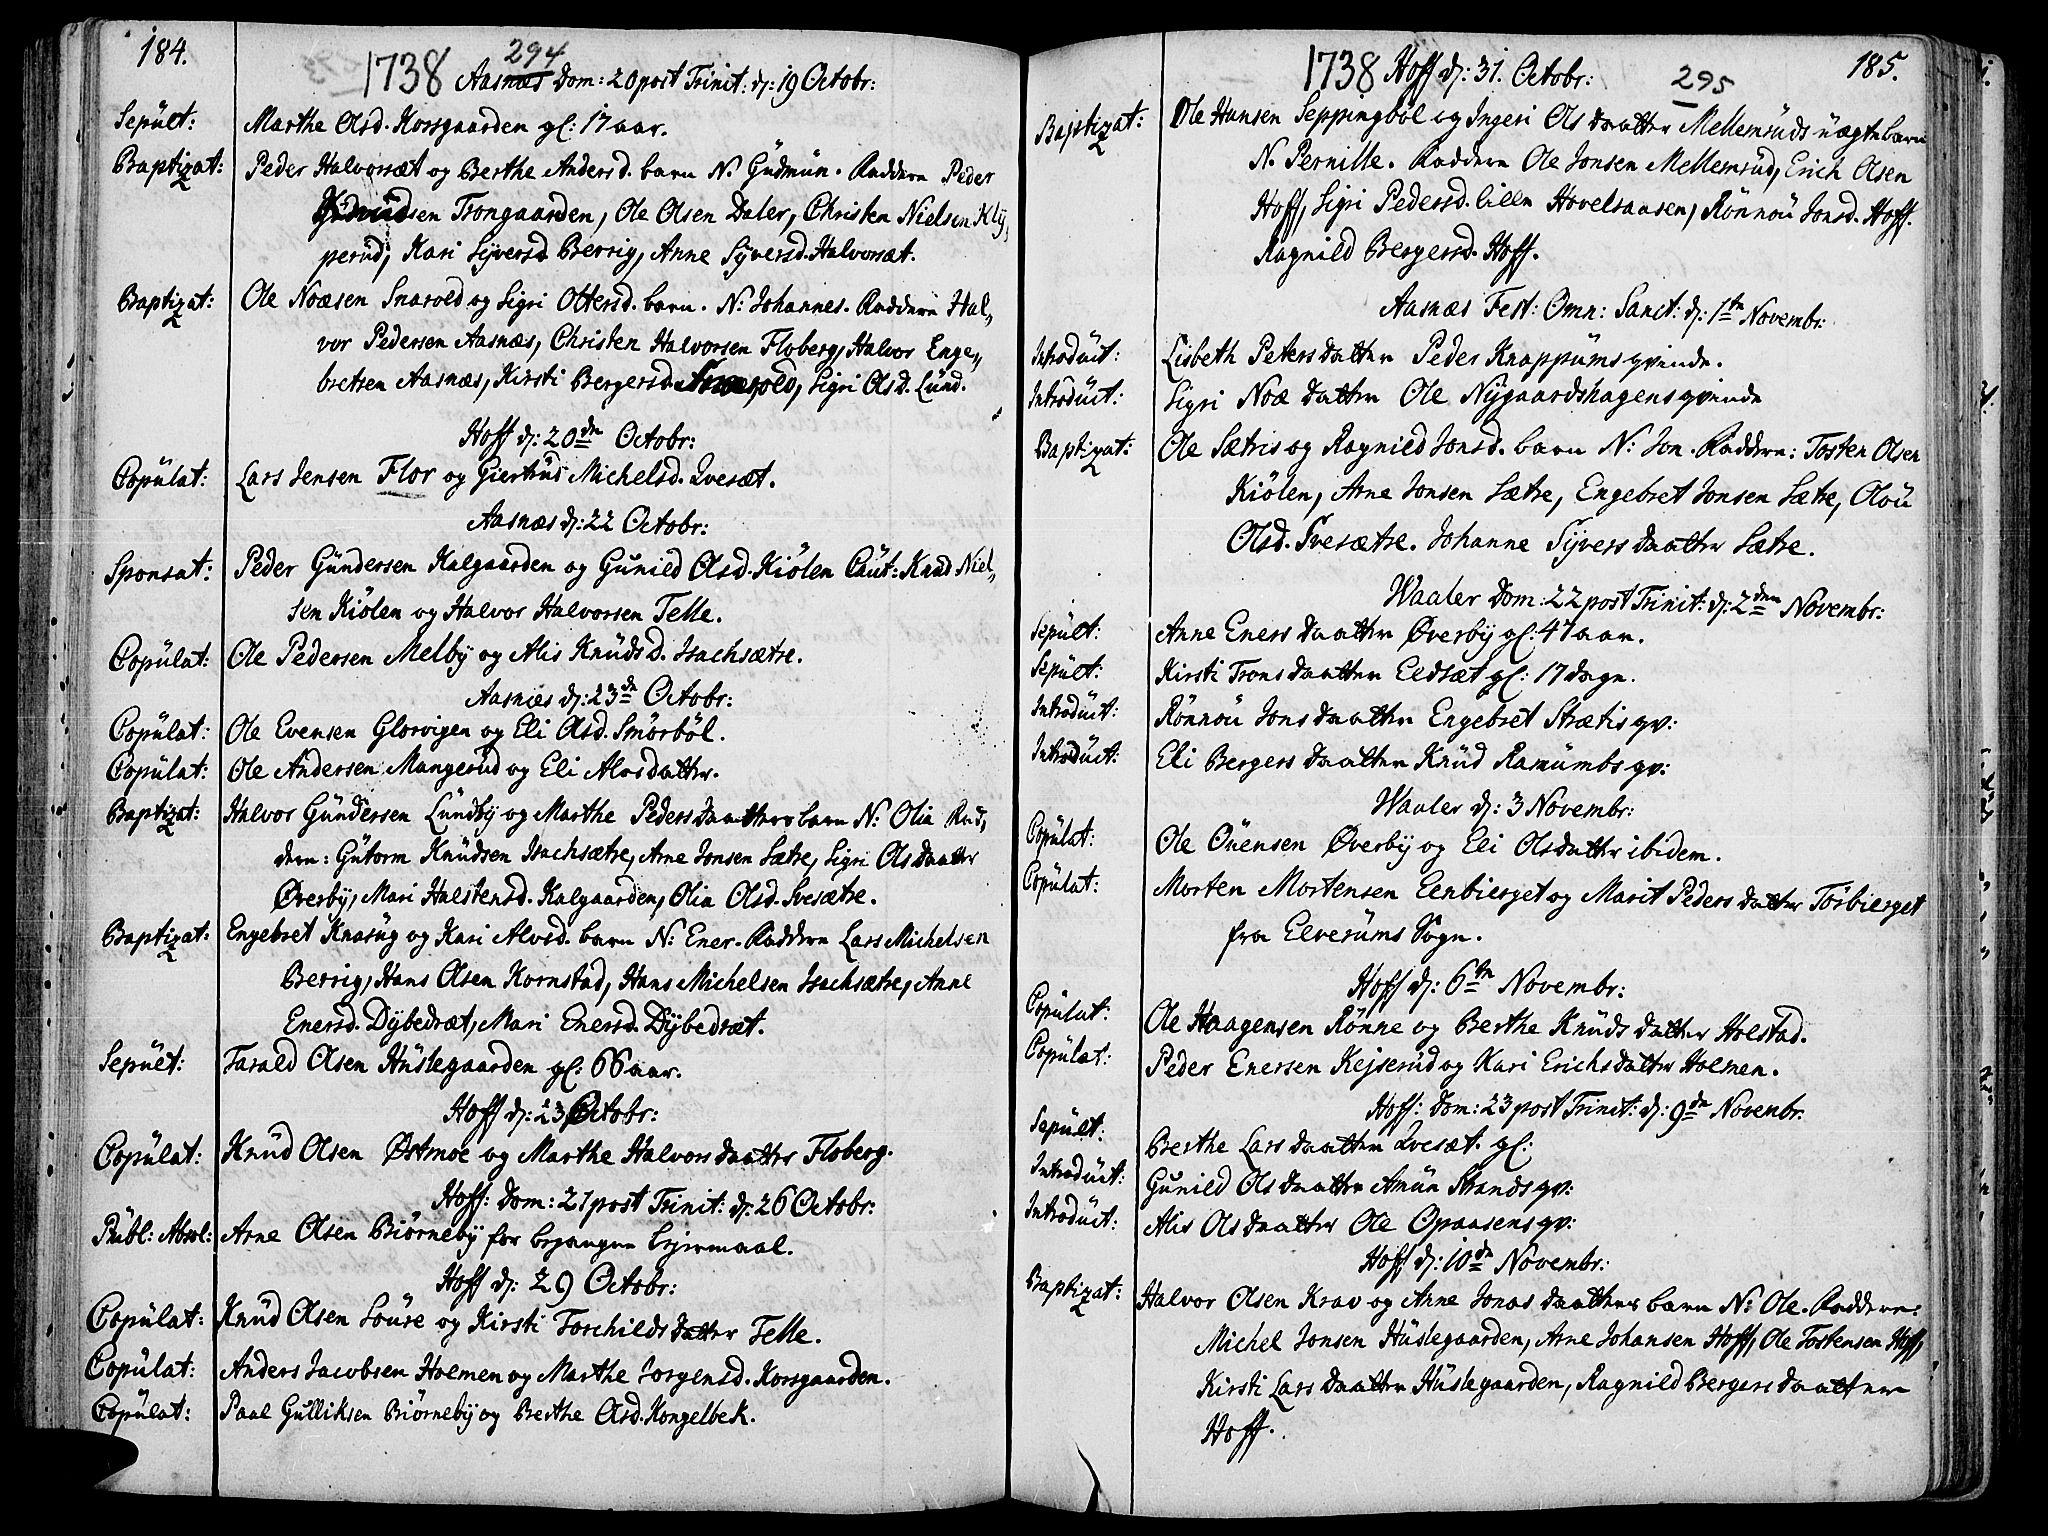 184.
294
1738 Aasnæs Dom: 20 post Trinit: d: 19 Octobr:
Sepult: Marthe Olsd. Korsgaarden gl: 17 aar.
Baptizat: Peder Halvorsæt og Berthe Andersd. barn N. Gudmun. Faddere Peder
Gudmundsen Trongaarden, Ole Olsen Daler, Christen Nielsen Kly,
perud, Kari Syversd. Berrig, Anne Syversd. Halvorsæt.
Baptizat: Ole Noæsen Snarold og Sigri Ottersd. barn. N: Johannes. Faddere Hal„
vor Pedersen Aasnæs, Christen Halvorsen Floberg, Halvor Enge„
bretsen Aasnæs, Kirsti Bergersd. Snarold, Sigri Olsd. Lund.
Hoff d: 20de Octobr:
Copulat: Lars Jensen Flor og Giertrud Michelsd. Qvesæt.
Aasnæs d: 22 Octobr:
Sponsat: Peder Gundersen Kalgaarden og Gunild Olsd. Kiølen Caut: Knud Niel„
sen Kiølen og Halvor Halvorsen Telle.
Copulat: Ole Pedersen Melby og Alis Knudsd. Isachsætre.
Aasnæs d: 23de Octobr:
Copulat: Ole Evensen Glorvigen og Eli Olsd. Smørbøl.
Copulat: Ole Andersen Mangerud og Eli Alvsdatter.
Baptizat: Halvor Gundersen Lundby og Marthe Pedersdaatters barn N: Olia Fad,
dere: Gutorm Knudsen Isachsætre, Arne Jonsen Sætre, Sigri Olsdaatter
Øverby, Mari Halstensd. Kalgaarden, Olia Olsd. Svesætre.
Baptizat: Engebret Knasug og Kari Alvsd. barn N: Ener. Faddere Lars Michelsen
Berrig, Hans Olsen Kornstad, Hans Michelsen Isachsætre, Anne
Enersd. Dybedræt, Mari Enersd. Dybedræt.
Sepult: Tarald Olsen Huslegaarden gl: 66 aar.
Hoff d: 23 Octobr:
Copulat: Knud Olsen Østmoe og Marthe Halvorsdaatter Floberg.
Hoff: Dom: 21 post Trinit: d: 26 Octobr:
Publ: Absol: Arne Olsen Biørneby for begangne Lejermaal.
Hoff d: 29 Octobr:
Copulat: Knud Olsen Soure og Kirsti Torchildsdatter Telle.
Copulat: Anders Jacobsen Holmen og Marthe Jorgensd. Korsgaarden.
Copulat: Paal Gulliksen Biørneby og Berthe Olsd. Kongelbek.
185.
295
1738 Hoff d: 31. Octobr:
Baptizat: Ole Hansen Seppingbøl og Ingeri Olsdaatter Mellemruds uægte barn
N. Pernille. Faddere Ole Jonsen Mellemrud, Erich Olsen
Hoff, Sigri Pedersd. lille Hovelsaasen, Rønnou Jonsd. Hoff.
Ragnild Bergersd. Hoff.
Aasnæs Fest: Omn: Sanct: d: 1te Novembr:
Introduct: Lisbeth Petersdaatter Peder Knappums qvinde.
Introduct: Sigri Noædatter Ole Nygaardshagens qvinde
Baptizat: Ole Sætris og Ragnild Jonsd. barn N: Jon. Faddere: Tosten Olsen
Kiølen, Arne Jonsen Sætre, Engebret Jonsen Sætre, Olou
Olsd. Svesætre. Johanne Syversdaatter Sætre.
Waaler Dom: 22 post Trinit: d: 2den Novembr:
Sepult: Anne Enersdaatter Øverby gl: 47 aar.
Sepult: Kirsti Tronsdaatter Eedsæt gl: 17 dage.
Introduct: Rønnou Jonsdaatter Engebret Strætis qv:
Introduct: Eli Bergersdaatter Knud Ramumbs qv:
Waaler d: 3 Novembr:
Copulat: Ole Ouensen Øverby og Eli Olsdatter ibidem.
Copulat: Morten Mortensen Eenbierget og Marit Pedersdatter Torbierget
fra Elverums Sogn.
Hoff d: 6te Novembr:
Copulat: Ole Haagensen Rønne og Berthe Knudsdatter Holstad.
Copulat: Peder Enersen Kejserud og Kari Erichsdatter Holmen.
Hoff: Dom: 23 post Trinit: d: 9de Novenbr.
Sepult: Berthe Larsdaatter Qvesæt. gl:
Introduct: Gunild Olsdaatter Amun Strands qv:
Introduct: Alis Olsdaatter Ole Opaasens qv:
Hoff d: 10de Novembr:
Baptizat: Halvor Olsen Krav og Anne Jonasdaatters barn N: Ole. Faddere:
Michel Jonsen Huslegaarden, Arne Johansen Hoff, Ole Tostensen Hoff,
Kirsti Larsdaatter Huslegaarden, Ragnild Bergersdaatter
Hoff.